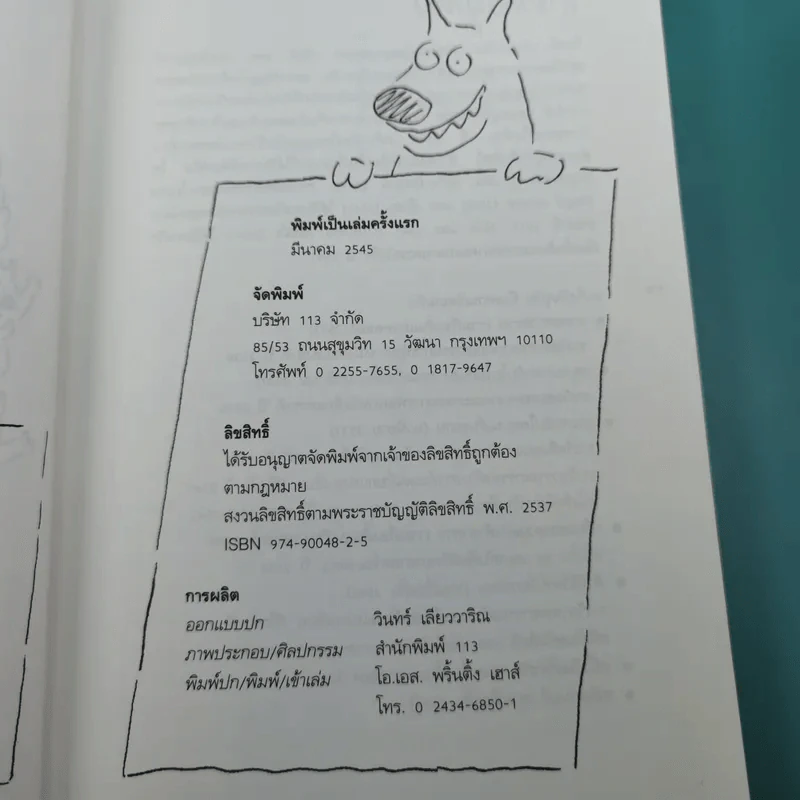 พิมพ์เป็นเล่มครั้งแรก
มีนาคม 2545
จัดพิมพ์
บริษัท 113 จำกัด
85/53 ถนนสุขุมวิท 15 วัฒนา กรุงเทพฯ 10110
โทรศัพท์ 0 2255-7655, 0 1817-9647
ลิขสิทธิ์
ได้รับอนุญาตจัดพิมพ์จากเจ้าของลิขสิทธิ์ถูกต้อง
ตามกฎหมาย
สงวนลิขสิทธิ์ตามพระราชบัญญัติลิขสิทธิ์ พ.ศ. 2537
ISBN 974-90048-2-5
การผลิต
ออกแบบปก วินทร์ เลียววาริณ
ภาพประกอบ/ศิลปกรรม สำนักพิมพ์ 113
พิมพ์ปก/พิมพ์/เข้าเล่ม โอ.เอส. พริ้นติ้ง เฮาส์
โทร. 0 2434-6850-1